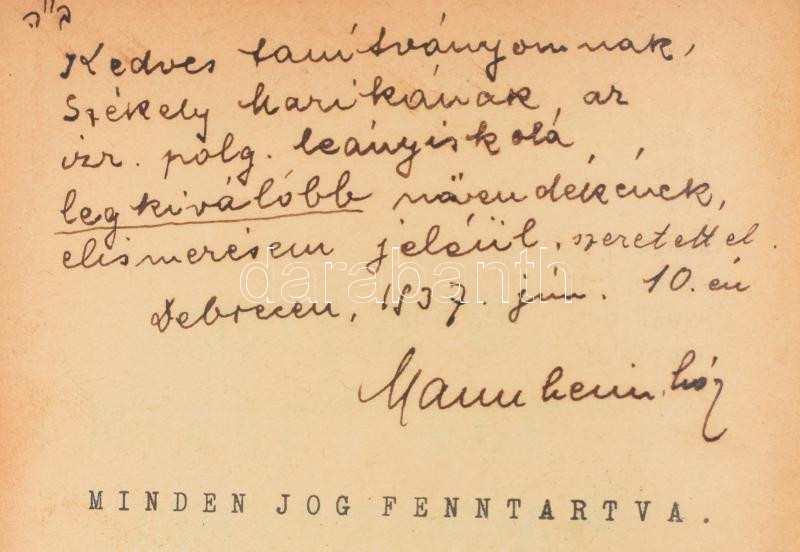 ב"ה
Kedves tanítványomnak,
Székely Marikának, az
izr. polg. leányiskola
legkiválóbb növendékének,
elismerésem jeléül, szeretettel.
darabanth
Debrecen, 1937. jún. 10.-én
Mannheim
MINDEN JOG FENNTARTVA.